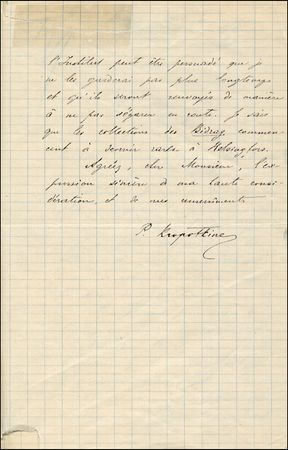 l'Institut peut être persuadé que je
ne les garderai pas plus longtemps
et qu'ils seront renvoyés de manière
à ne pas s'égarer en route. Je sais
que les collections des Bidrag commen-
cent à devenir rares à Helsingfors.
Agréez, cher Monsieur, l'ex-
pression sincère de ma haute consi-
dération, et de mes remerciments
P. Kropotkine